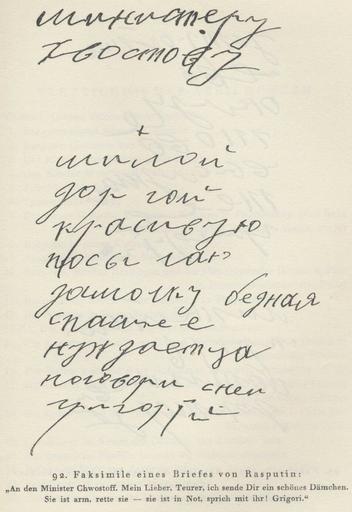 министеру
хвостову
+
милой
дор гой
красивую
посылаю
дамочку бедная
спаси ее
нуждаетца
поговори с ней
григорий
92. Faksimile eines Briefes von Rasputin:
„An den Minister Chwostoff. Mein Lieber, Teurer, ich sende Dir ein schönes Dämchen.
Sie ist arm, rette sie — sie ist in Not, sprich mit ihr! Grigori.“